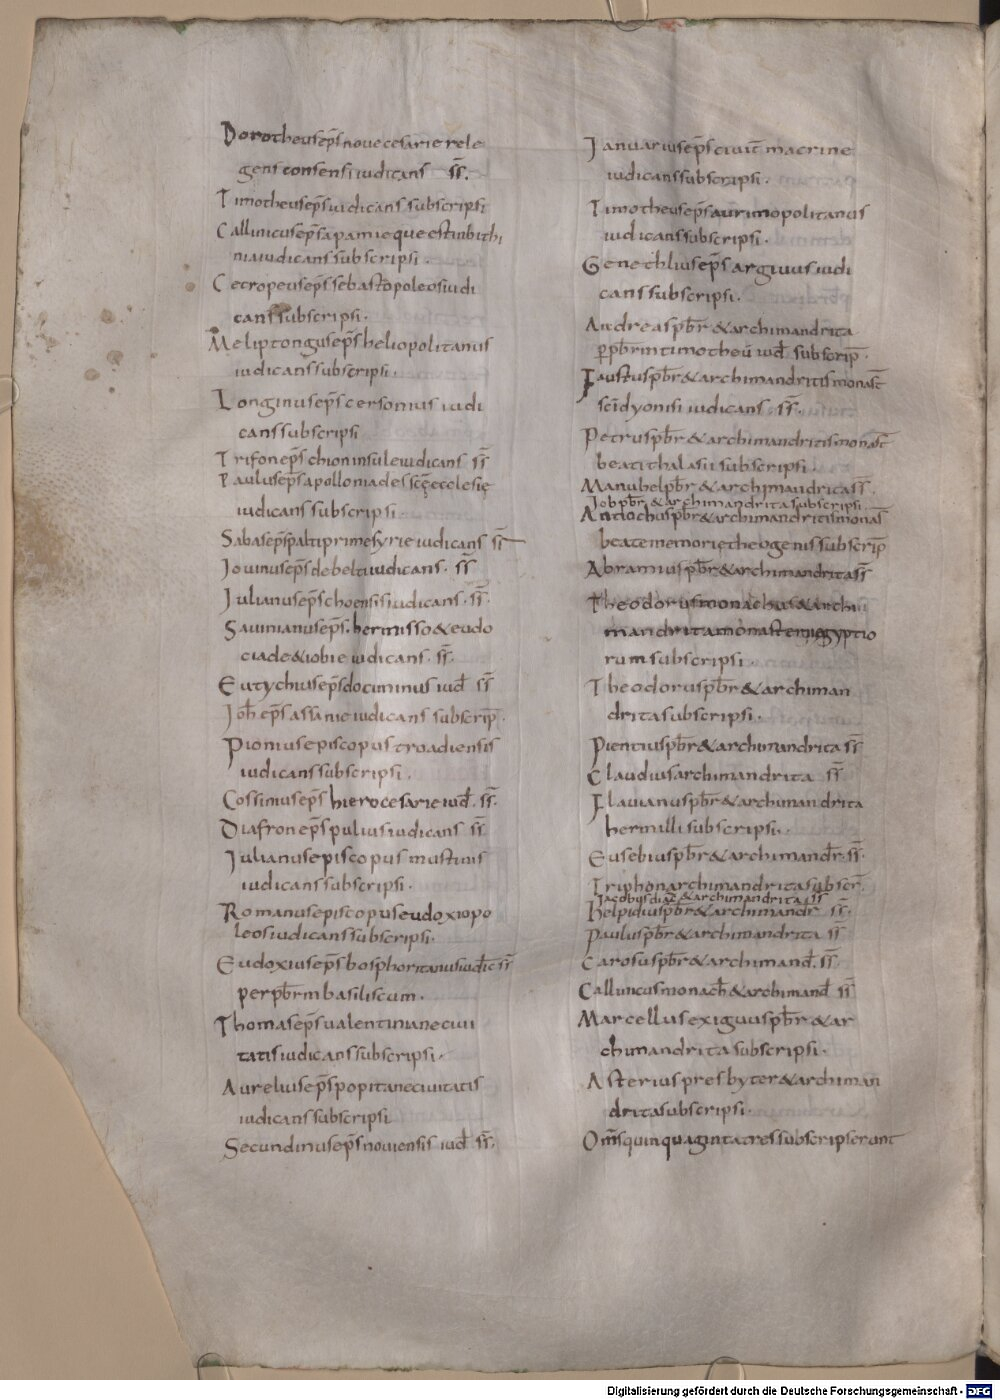 Dorotheus ep̄s nouecesarie rele
gens consensi iudicans s̄s̄.
Timotheus ep̄s iudicans subscripsi
Callinicus ep̄s apamie que est in bithi
nia iudicans subscripsi.
Cecropeus ep̄s sebastopoleos iudi
cans subscripsi.
Meliptongus ep̄s heliopolitanus
iudicans subscripsi.
Longinus ep̄s cersonius iudi
cans subscripsi
Trifon ep̄s chion insule iudicans s̄s̄
Paulus ep̄s apolloniades sc̄ę ecclesię
iudicans subscripsi.
Sabas ep̄s palti prime syrie iudicans s̄s̄
Iouinus ep̄s debelti iudicans. s̄s̄
Iulianus ep̄s choensis iudicans. s̄s̄.
Sauinianus ep̄s. hermisso & eudo
ciade & iobie iudicans. s̄s̄.
Eutychius ep̄s dociminus iud̄ s̄s̄
Ioh̄ ep̄s assanie iudicans subscrip̄.
Pionius episcopus troadiensis
iudicans subscripsi.
Cossimus ep̄s hierocesarie iud̄. s̄s̄.
Diafron ep̄s pulius iudicans s̄s̄
Iulianus episcopus mustinis
iudicans subscripsi.
Romanus episcopus eudoxiopo
leos iudicans subscripsi.
Eudoxius ep̄s bosphoritanus iudic̄ s̄s̄
per pb̄rm basiliscum.
Thomas ep̄s ualentiniane ciui
tatis iudicans subscripsi.
Aurelius ep̄s popitane ciuitatis
iudicans subscripsi
Secundinus ep̄s nouiensis iud̄ s̄s̄.
Ianuarius ep̄s ciuit̄ macrine
iudicans subscripsi.
Timotheus ep̄s aurimopolitanus
iudicans subscripsi.
Genethlius ep̄s argiuus iudi
cans subscripsi.
Andreas pb̄r & archimandrita
ꝑ pb̄rm timotheū iud̄ subscrip̄.
Faustus pb̄r & archimandritis monast̄
sc̄i dyonisi iudicans. s̄s̄.
Petrus pb̄r & archimandritis monast̄
beati thalasii subscripsi.
Manuhel pb̄r & archimandrita s̄s̄.
Iob pb̄r & archimandrita subscripsi.
Antiochus pb̄r & archimandritis monas̄
beate memorie theogenis subscrip̄
Abramius pb̄r & archimandrita s̄s̄
Theodorus monachus & archi
mandrita monasterii ęgyptio
rum subscripsi.
Theodorus pb̄r & archiman
drita subscripsi.
Pientius pb̄r & archimandrita s̄s̄
Claudius archimandrita s̄s̄
Flauianus pb̄r & archimandrita
hermilli subscripsi.
Eusebius pb̄r & archimandr̄. s̄s̄.
Triphon archimandrita subscr̄.
Iacobus diac̄ & archimandrita s̄s̄
Helpidius pb̄r & archimandr̄ s̄s̄.
Paulus pb̄r & archimandrita s̄s̄
Carosus pb̄r & archimand̄. s̄s̄.
Callinicus monach̄ & archimand̄ s̄s̄
Marcellus exiguus pb̄r & ar
chimandrita subscripsi.
Asterius presbyter & archiman
drita subscripsi.
Om̄s quinquaginta tres subscripserunt
Digitalisierung gefördert durch die Deutsche Forschungsgemeinschaft - DFG